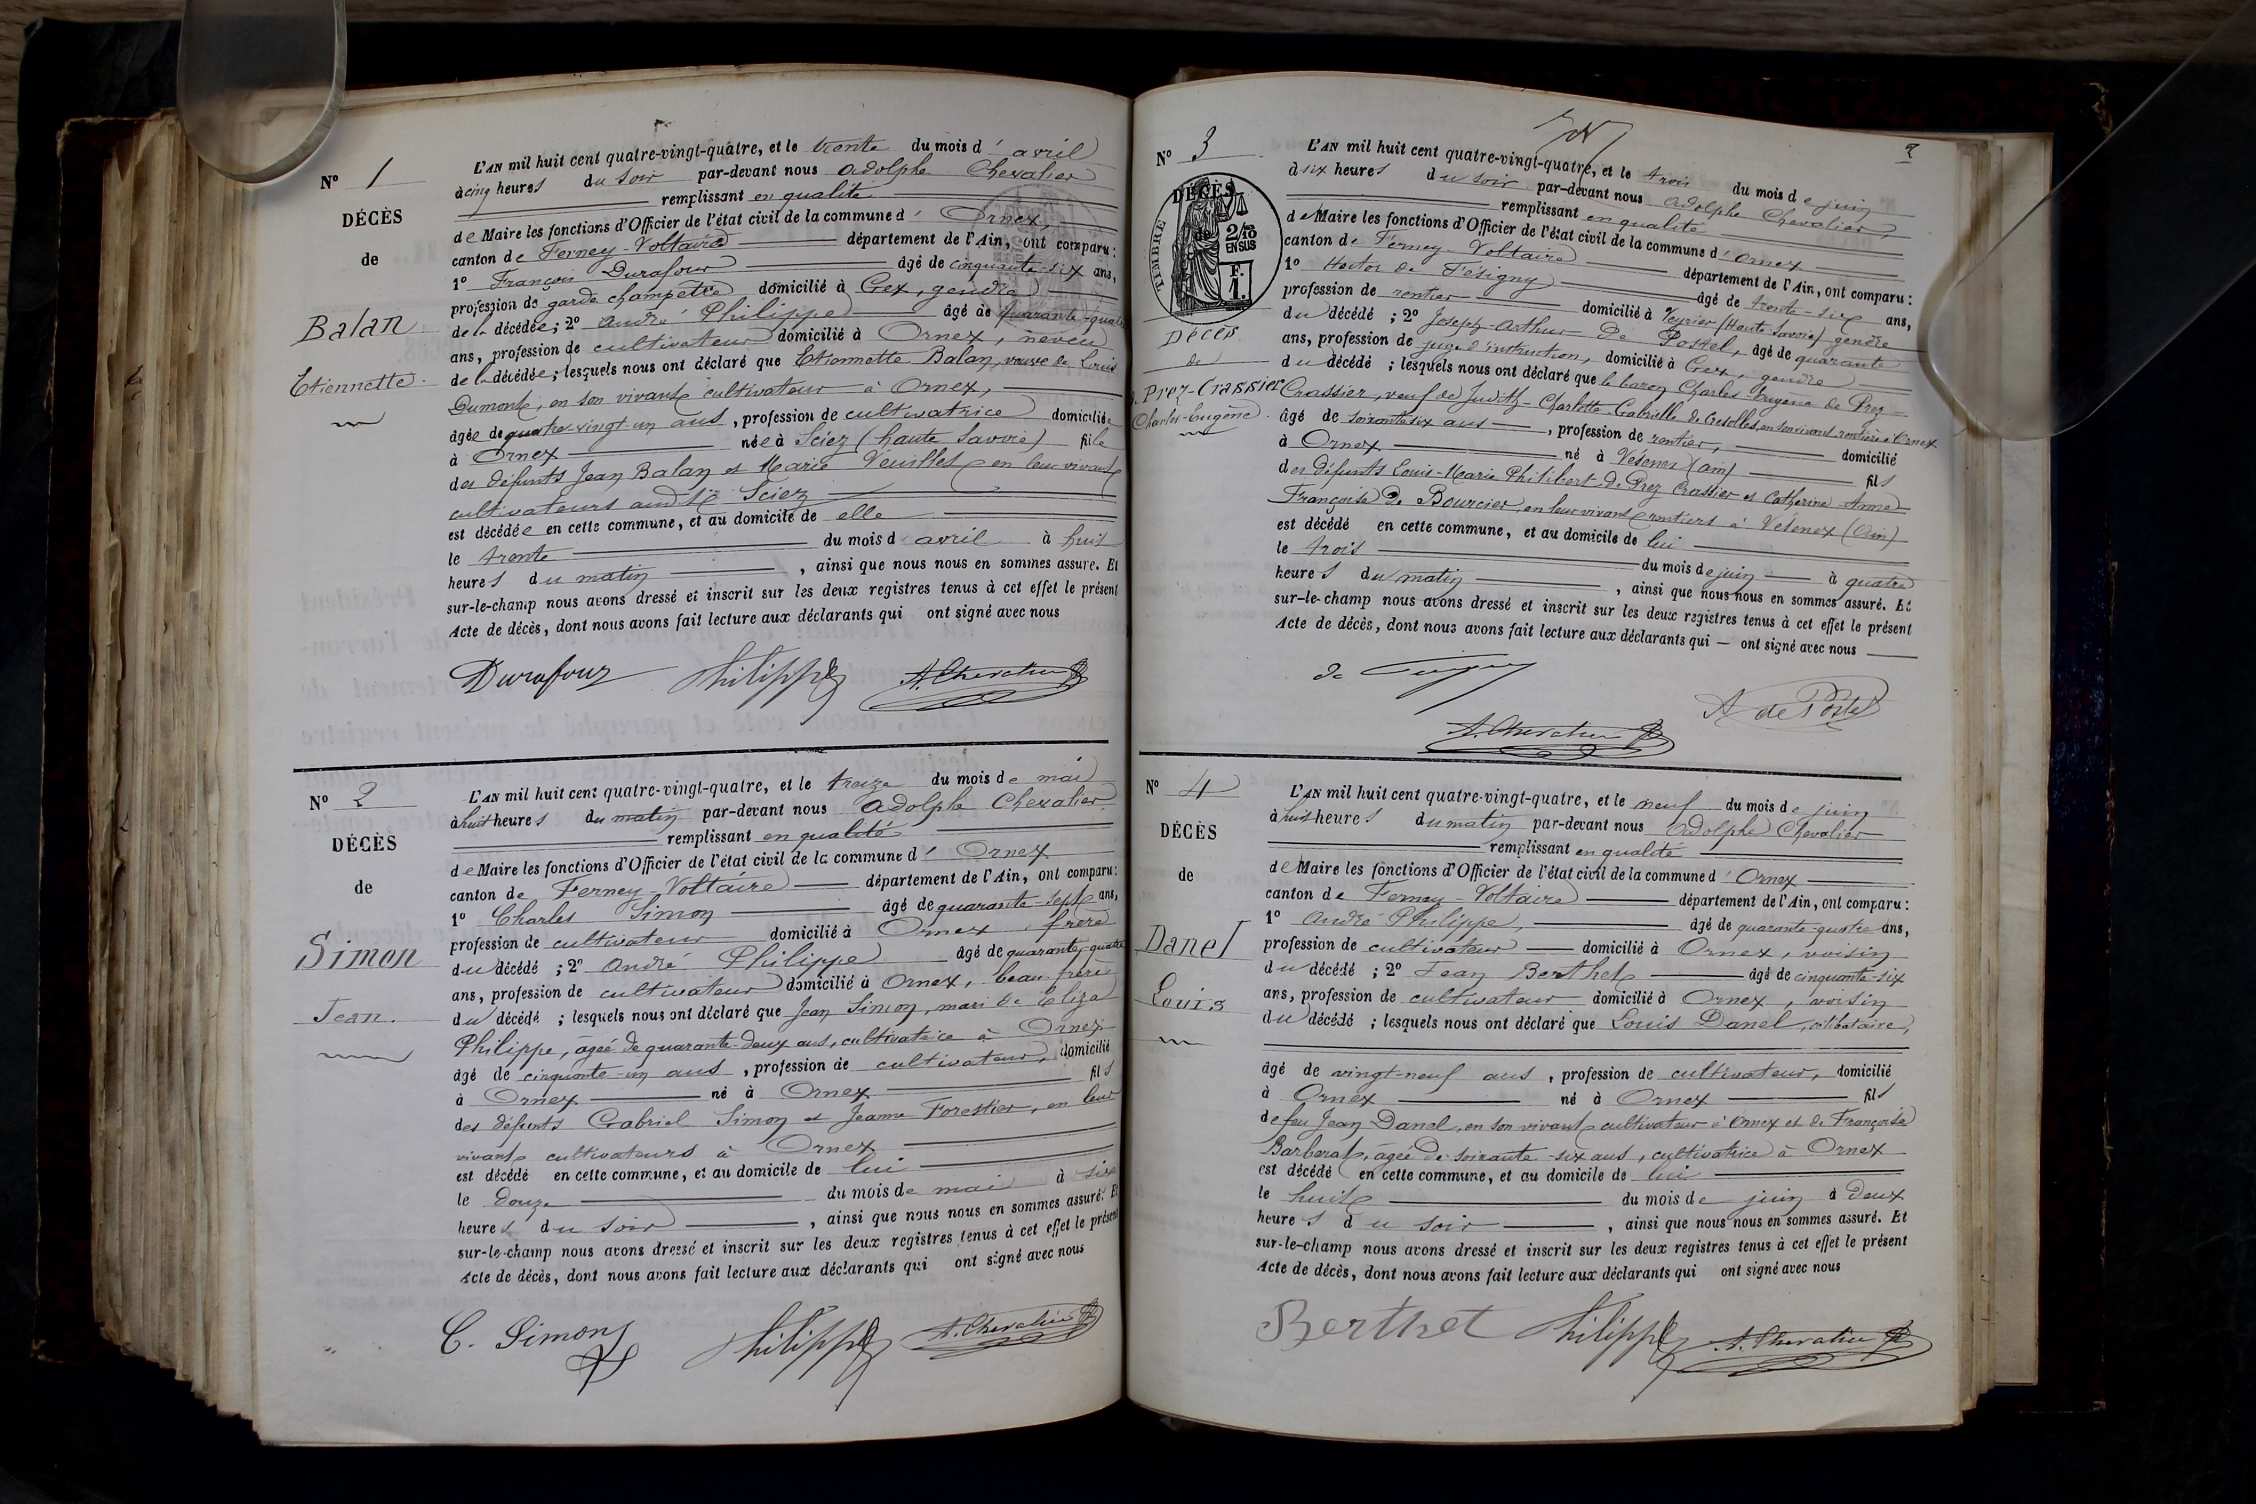 N° 1
DÉCÈS
de
Balan
Etiennette.
L'AN mil huit cent quatre-vingt-quatre, et le trente du mois d'avril
à cinq heures du soir par-devant nous Adolphe Chevalier
remplissant en qualité
de Maire les fonctions d'Officier de l'état civil de la commune d'Ornex,
canton de Ferney-Voltaire département de l'Ain, ont comparu :
1° François Durafour âgé de cinquante-six ans,
profession de garde champêtre domicilié à Gex, gendre
de la décédée ; 2° André Philippe âgé de quarante-quatre
ans, profession de cultivateur domicilié à Ornex, neveu
de la décédée ; lesquels nous ont déclaré que Etiennette Balan, veuve de Louis
Dumont, en son vivant cultivateur à Ornex,
âgée de quatre-vingt-un ans, profession de cultivatrice domiciliée
à Ornex née à Sciez (haute Savoie) fille
des défunts Jean Balan et Marie Veuillet en leur vivant
cultivateurs audit Sciez
est décédée en cette commune, et au domicile de elle
le trente du mois d'avril à huit
heures du matin, ainsi que nous nous en sommes assuré. Et
sur-le-champ nous avons dressé et inscrit sur les deux registres tenus à cet effet le présent
Acte de décès, dont nous avons fait lecture aux déclarants qui ont signé avec nous
Durafour Philippe A. Chevalier
N° 2
DÉCÈS
de
Simon
Jean.
L'AN mil huit cent quatre-vingt-quatre, et le treize du mois de mai
à huit heures du matin par-devant nous Adolphe Chevalier
remplissant en qualité
de Maire les fonctions d'Officier de l'état civil de la commune d'Ornex
canton de Ferney-Voltaire département de l'Ain, ont comparu :
1° Charles Simon âgé de quarante-sept ans,
profession de cultivateur domicilié à Ornex, frère
du décédé ; 2° André Philippe âgé de quarante-quatre
ans, profession de cultivateur domicilié à Ornex, beau frère
du décédé ; lesquels nous ont déclaré que Jean Simon, mari de Eliza
Philippe, âgée de quarante-deux ans, cultivatrice à Ornex
âgé de cinquante-un ans, profession de cultivateur, domicilié
à Ornex né à Ornex fils
des défunts Gabriel Simon et Jeanne Forestier, en leur
vivant cultivateurs à Ornex
est décédé en cette commune, et au domicile de lui
le douze du mois de mai à six
heures du soir, ainsi que nous nous en sommes assuré. Et
sur-le-champ nous avons dressé et inscrit sur les deux registres tenus à cet effet le présent
Acte de décès, dont nous avons fait lecture aux déclarants qui ont signé avec nous
C. Simon Philippe A. Chevalier
2
N° 3
TIMBRE
DÉCÈS
de
2/10
EN SUS
F.
1.
Décès
de
Prez-Crassier
Charles-Eugène.
L'AN mil huit cent quatre-vingt-quatre, et le trois du mois de juin
à six heures du soir par-devant nous Adolphe Chevalier,
remplissant en qualité
de Maire les fonctions d'Officier de l'état civil de la commune d'Ornex
canton de Ferney-Voltaire département de l'Ain, ont comparu :
1° Hector de Tésigny âgé de trente-six ans,
profession de rentier domicilié à Veyrier (Haute Savoie) gendre
du décédé ; 2° Joseph-Arthur de Postel, âgé de quarante
ans, profession de juge d'instruction, domicilié à Gex, gendre
du décédé ; lesquels nous ont déclaré que le baron Charles-Eugène de Prez-
Crassier, veuf de Judith-Charlotte-Gabrielle de en son vivant rentière à Ornex
âgé de soixante six ans, profession de rentier, domicilié
à Ornex né à Vésenex (ain) fils
des défunts Louis-Marie Philibert de Prez Crassier et Catherine Anne
Françoise De Bourcier, en leur vivant rentiers à Vésenex (Ain)
est décédé en cette commune, et au domicile de lui
le trois du mois de juin à quatre
heures du matin, ainsi que nous nous en sommes assuré. Et
sur-le-champ nous avons dressé et inscrit sur les deux registres tenus à cet effet le présent
Acte de décès, dont nous avons fait lecture aux déclarants qui — ont signé avec nous
de
A de Postel
A. Chevalier
N° 4
DÉCÈS
de
Danel
Louis
L'AN mil huit cent quatre-vingt-quatre, et le neuf du mois de juin
à huit heures du matin par-devant nous Adolphe Chevalier
remplissant en qualité
de Maire les fonctions d'Officier de l'état civil de la commune d'Ornex
canton de Ferney-Voltaire département de l'Ain, ont comparu :
1° André Philippe, âgé de quarante-quatre ans,
profession de cultivateur domicilié à Ornex, voisin
du décédé ; 2° Jean Berthet âgé de cinquante-six
ans, profession de cultivateur domicilié à Ornex, voisin
du décédé ; lesquels nous ont déclaré que Louis Danel, célibataire,
âgé de vingt-neuf ans, profession de cultivateur, domicilié
à Ornex né à Ornex fils
de feu Jean Danel, en son vivant cultivateur à Ornex et de Françoise
Barberat, âgée de soixante-six ans, cultivatrice à Ornex
est décédé en cette commune, et au domicile de lui
le huit du mois de juin à deux
heures du soir, ainsi que nous nous en sommes assuré. Et
sur-le-champ nous avons dressé et inscrit sur les deux registres tenus à cet effet le présent
Acte de décès, dont nous avons fait lecture aux déclarants qui ont signé avec nous
Berthet Philippe A. Chevalier